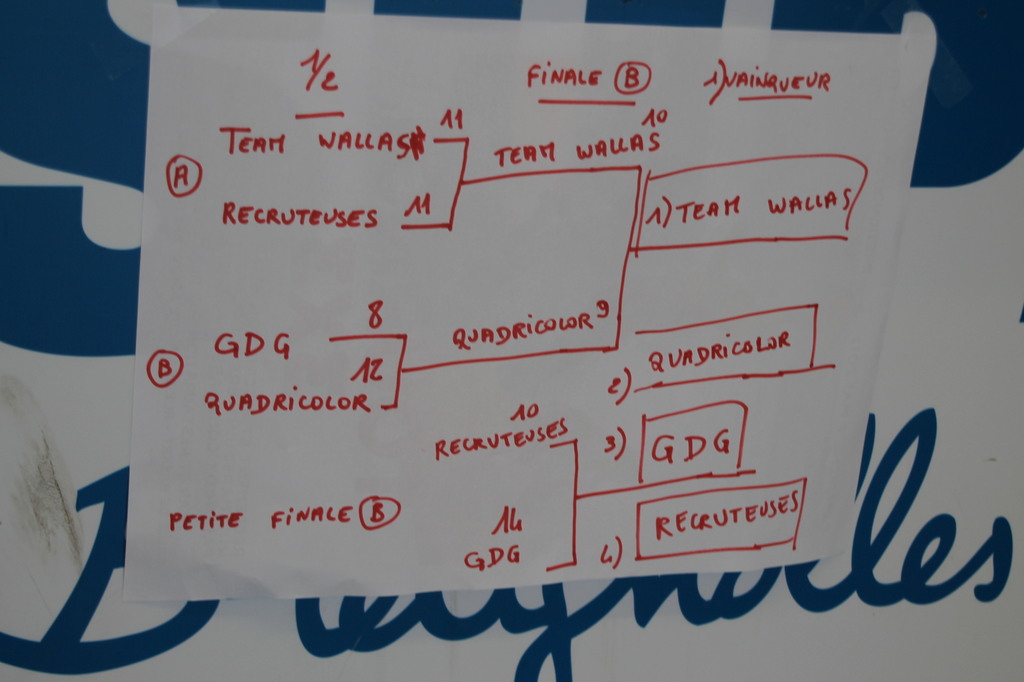 1/2
FINALE B
1) VAINQUEUR
TEAM WALLAS 11
TEAM WALLAS 10
A
RECRUTEUSES 11
1) TEAM WALLAS
GDG 8
QUADRICOLOR 9
B
QUADRICOLOR 12
2) QUADRICOLOR
RECRUTEUSES 10
3) GDG
PETITE FINALE B
GDG 14
4) RECRUTEUSES